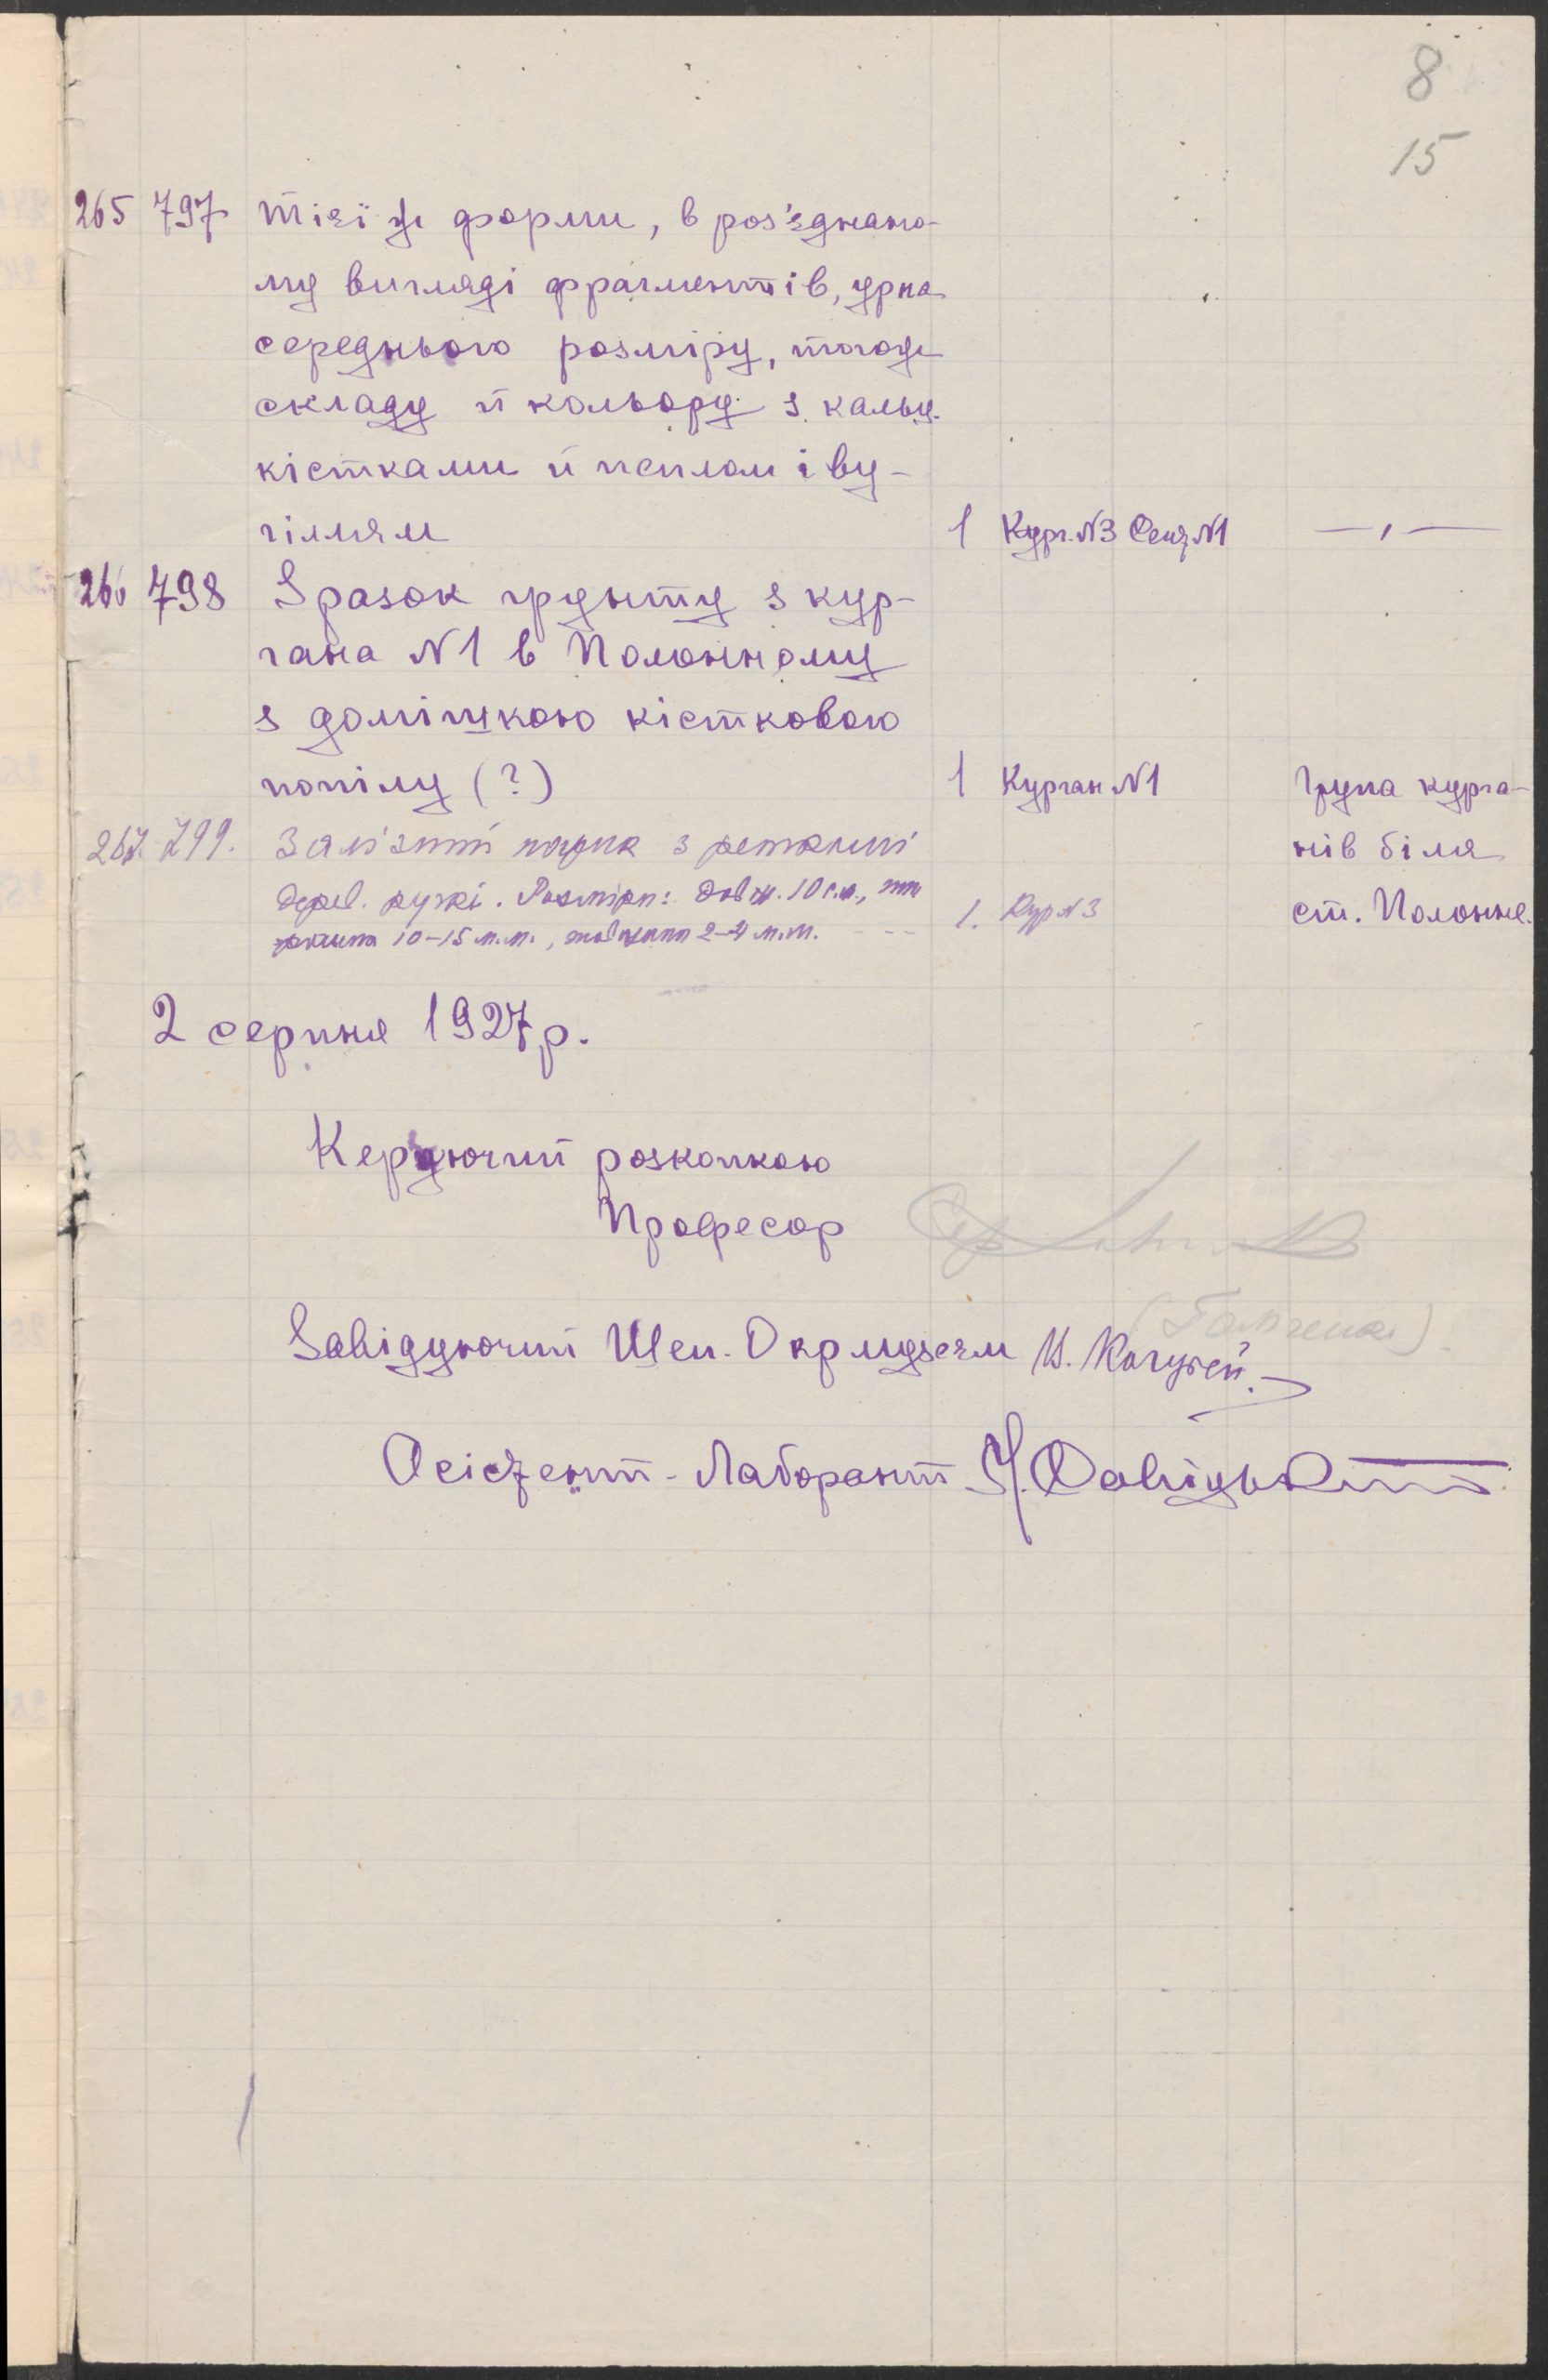 8
15
265 797 Тієї ж форми, в роз'єднано-
му вигляді фрагментів, урна
середнього розміру, того ж
складу й кольору з кальц.
кістками й попелом і ву-
гіллям 1 Кург. №3 Секц №1 —„—
266 798 Зразок ґрунту з кур-
гана №1 в Полонному
з домішкою кісткового
попілу (?) 1 Курган №1 Група курга-
267. 799. Залізний з нів біля
дерев. ручкі. Розміри: Довж. 10 с.м., ши 1. Кур №3 ст. Полонне.
рокина 10-15 м.м., товщина 2-4 м.м.
2 серпня 1927 р.
Керуючий розкопкою
Професор
(Гамченко)
Завідуючий Шеп. Окрмузеєм
Асістент-Лаборант